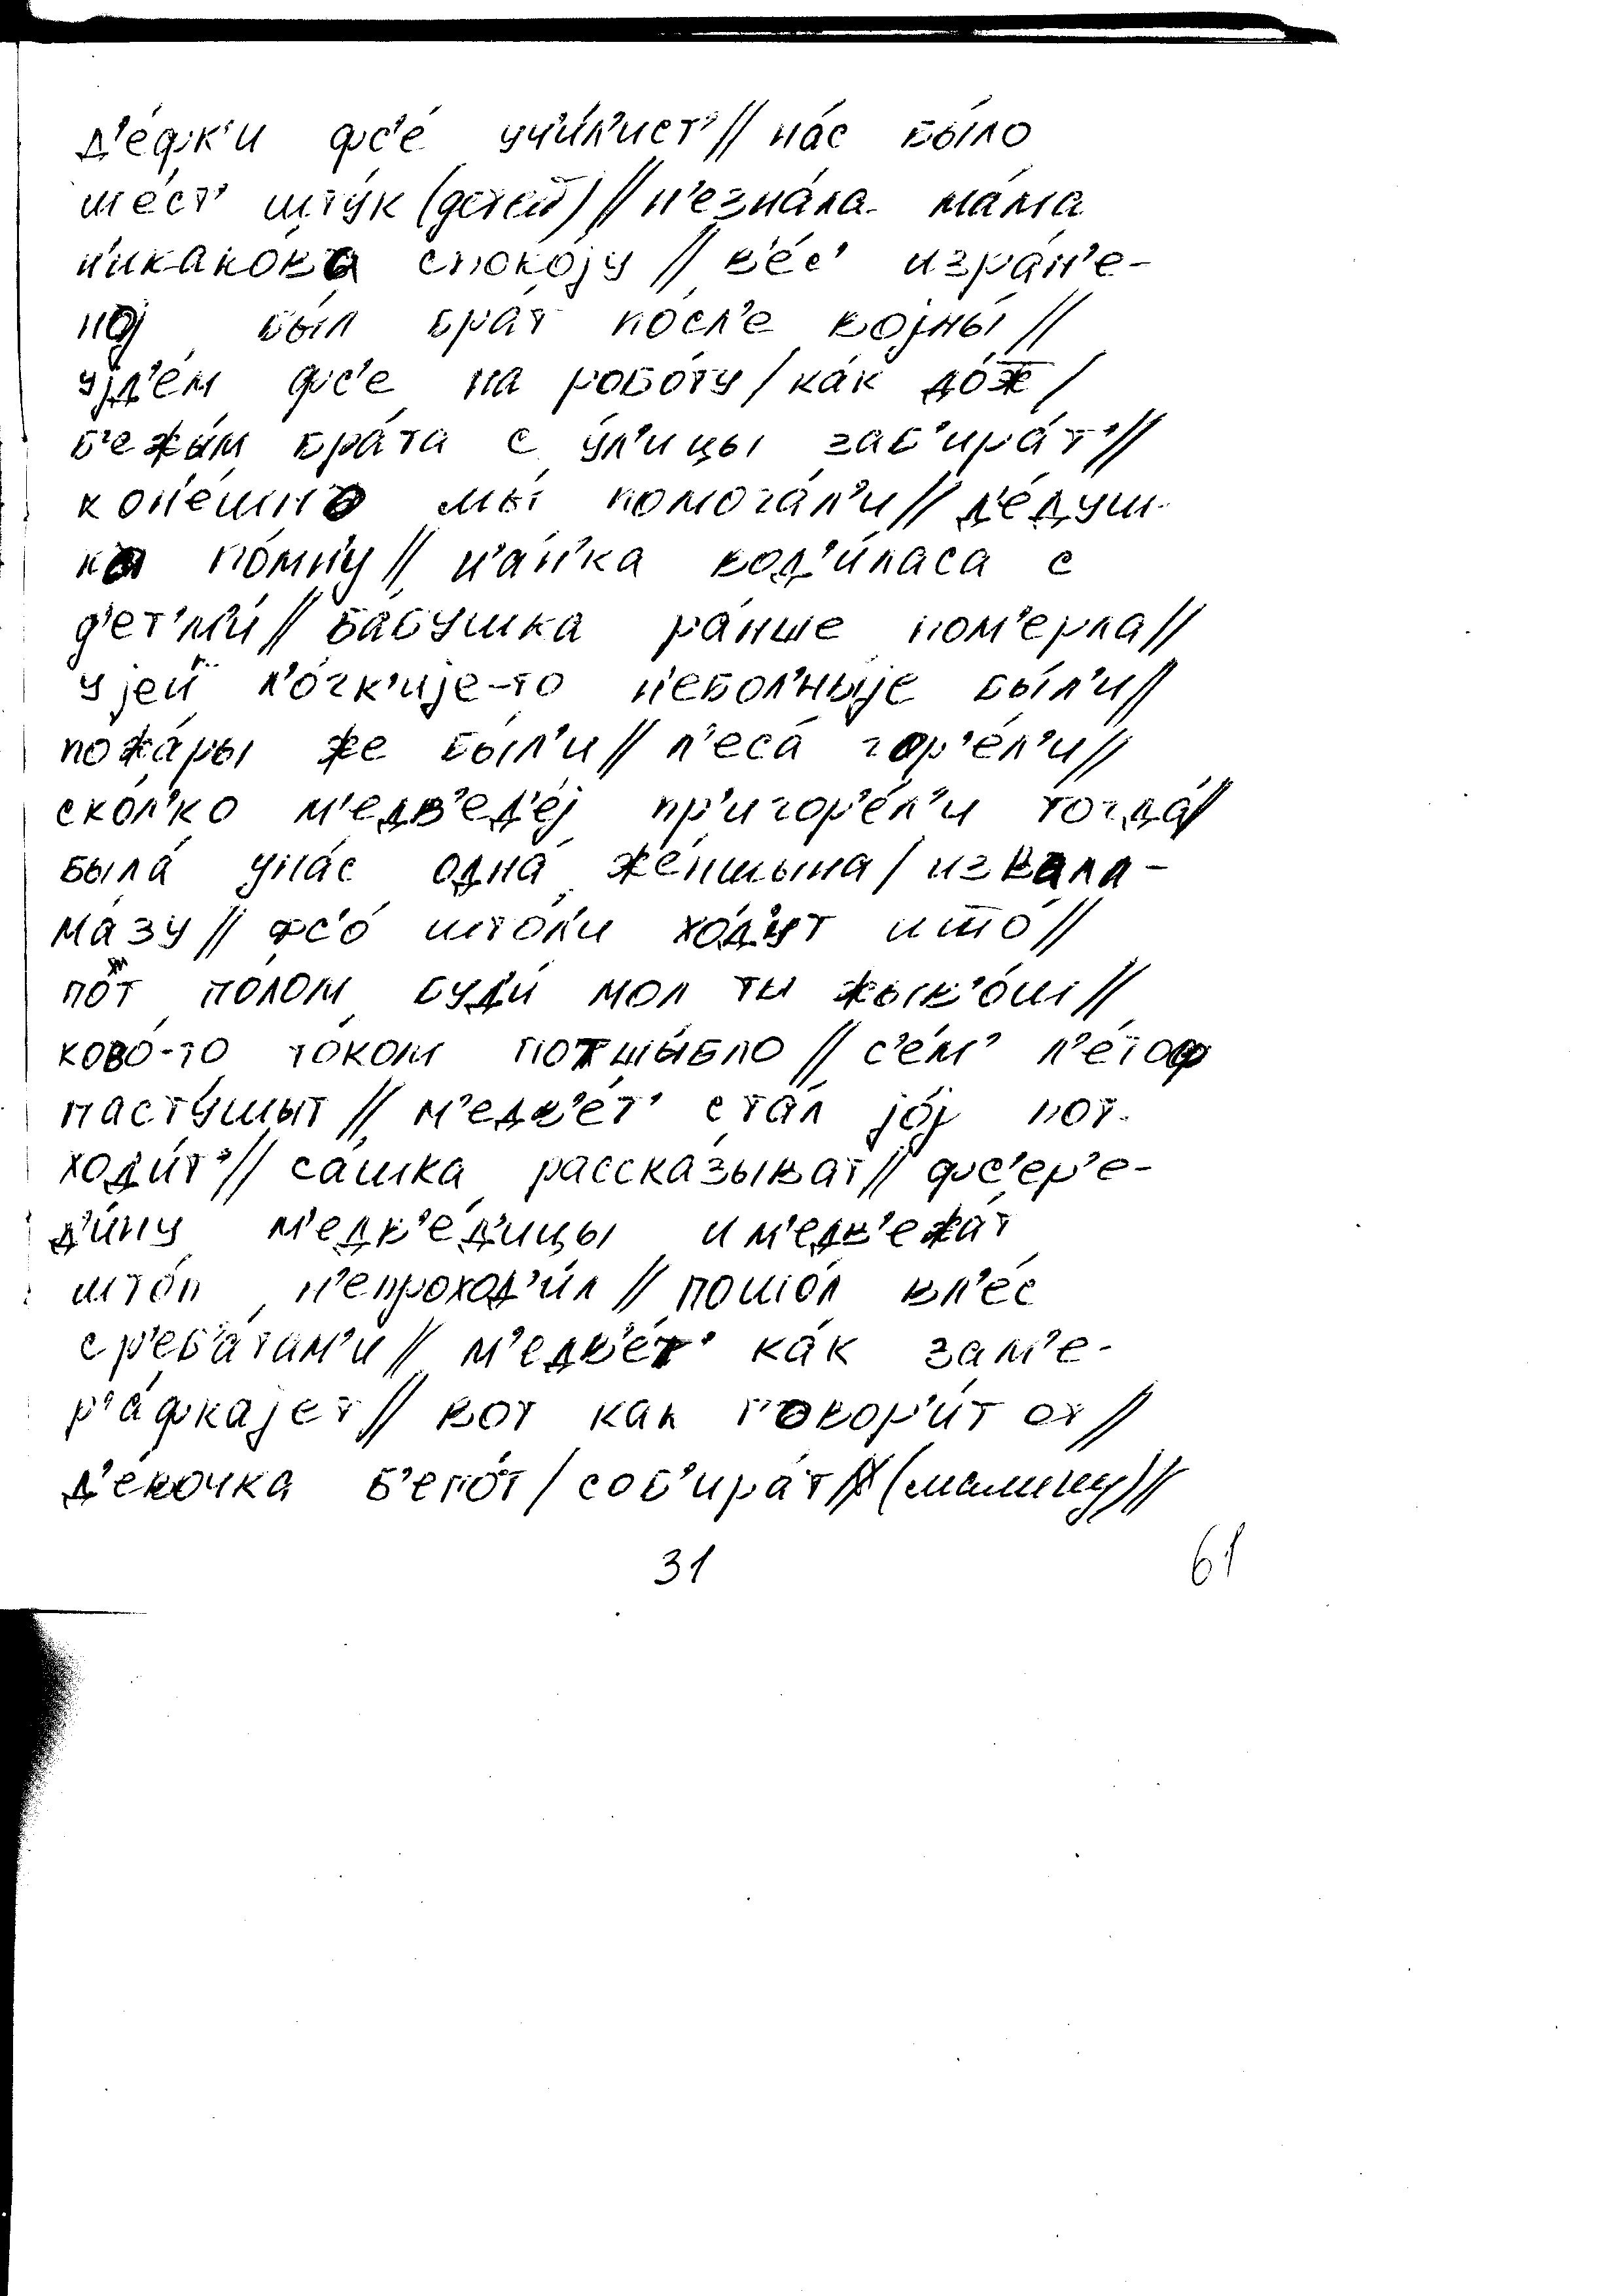 д'е́фк'и фс'е́ уч'и́л'ист'// на́с бы́ло
ше́ст' шту́к (детей)// н'езна́ла ма́ма
н'икако́ва споко́jу // в'е́с' изра́н'е-
ноj бы́л бра́т по́сл'е воjны́ //
уjд'е́м фс'е на робо́ту / ка́к до́ж /
б'ежы́м бра́та с у́л'ицы заб'ира́т'//
кон'е́шно мы́ помога́л'и // д'е́душ-
ка по́мн'у // н'а́н'ка вод'и́ласа с
д'ет'м'и́ // ба́бушка ра́нше пом'ерла //
у jей л'о́гк'иjе-то н'ебол'ныjе бы́л'и //
пожа́ры же бы́л'и // л'еса́ гор'е́л'и //
ско́л'ко м'едв'ед'е́j пр'игор'е́л'и тогда́ //
была́ уна́с одна́ же́ншына / из вала-
ма́зу // фс'о́ што́л'и хо́д'ут што́ //
по́т по́лом буд'и́ мол ты жыв'о́ш //
ково́-то то́ком потшы́бло // с'е́м' л'е́тоф
пасту́шыт // м'едв'е́т' ста́л jо́j пот-
ход'и́т' // са́шка расска́зыват // фс'ер'е-
д'и́ну м'едв'е́д'ицы и м'едв'ежа́т
што́п н'епроход'и́л // пошо́л вл'е́с
ср'еб'а́там'и // м'едв'е́т' ка́к зам'е-
р'а́фкаjет // вот как говор'и́т от //
д'е́вочка б'ег'о́т / соб'ира́т (малину) //
31
61